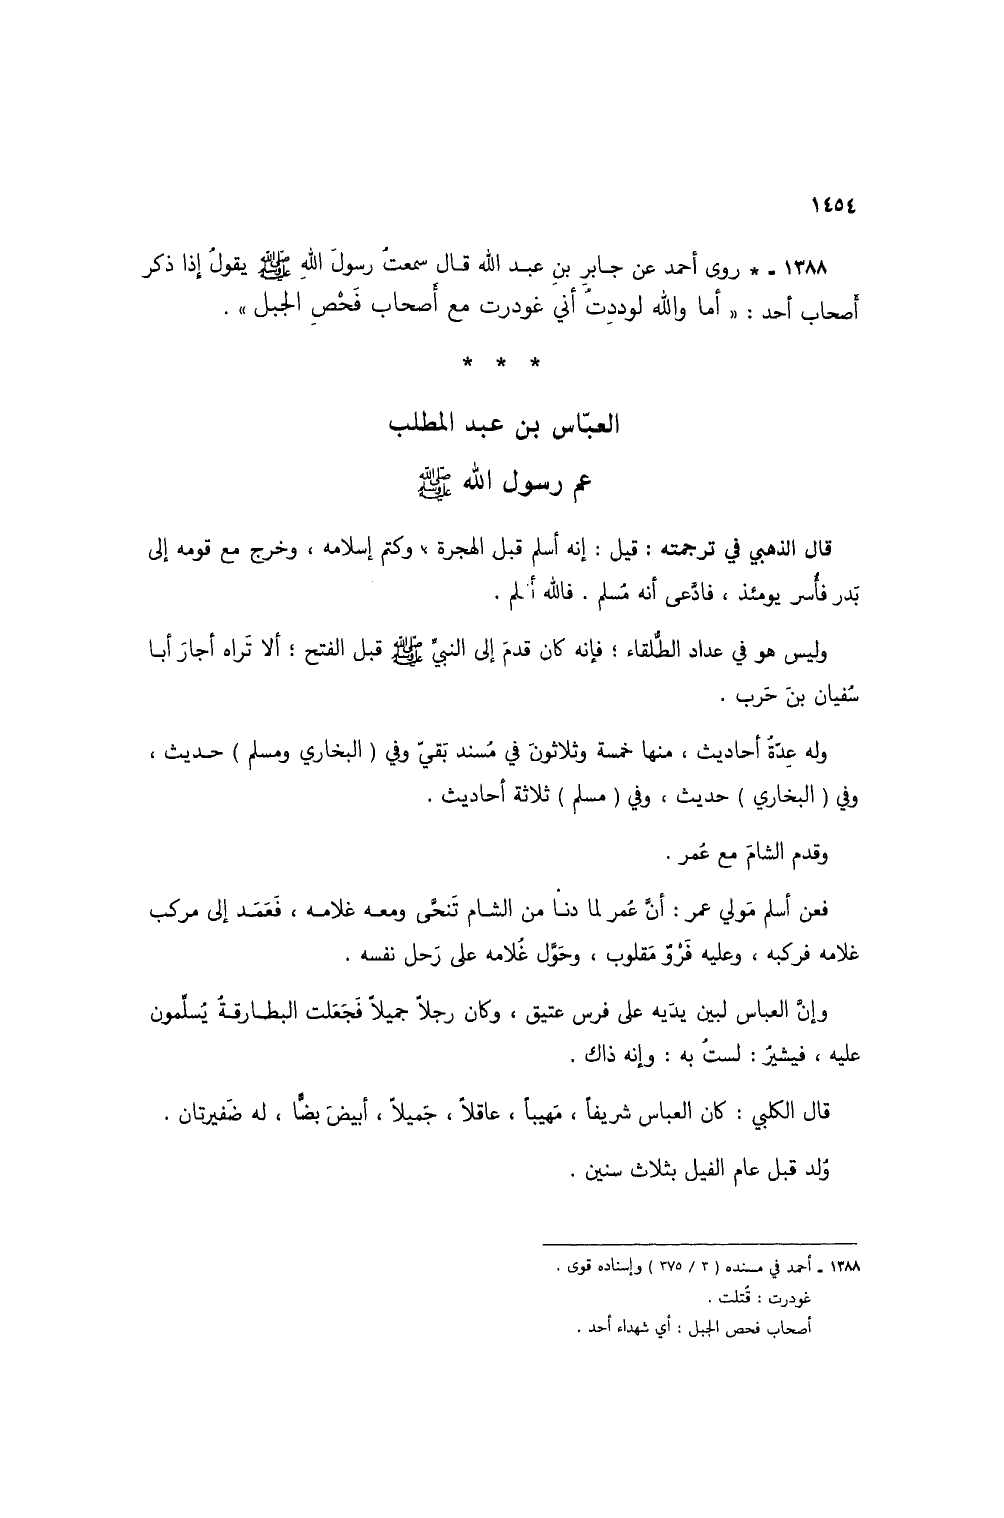 ١٤٥٤
١٣٨٨ - * روى أحمد عن جـابرِ بنِ عبـد الله قـال سمعتُ رسولَ اللهِ ﷺ يقولُ إذا ذكر
أصحاب أحد : « أما والله لوددِتُ أني غودرت مع أصحاب فَحْصِ الجبل » .
* * *
العبّاس بن عبد المطلب
عم رسول الله ﷺ
قال الذهبي في ترجمته : قيل : إنه أسلم قبل الهجرة ، وكتم إسلامه ، وخرج مع قومه إلى
بَدر فأُسر يومئذ ، فادَّعى أنه مُسلم . فالله أعلم .
وليس هو في عداد الطُّلقاء ؛ فإنه كان قدمَ إلى النبيِّ ﷺ قبل الفتح ؛ ألا تَراه أجارَ أبـا
سُفيان بنَ حَرب .
وله عِدّةُ أحاديث ، منها خمسة وثلاثونَ في مُسند بَقيّ وفي ( البخاري ومسلم ) حـديث ،
وفي ( البخاري ) حديث ، وفي ( مسلم ) ثلاثة أحاديث .
وقدم الشامَ مع عُمر .
فعن أسلم مَولي عمر : أنَّ عُمر لما دنـا من الشـام تَنحَّى ومعـه غلامـه ، فَعَمَـد إلى مركب
غلامه فركبه ، وعليه فَرْوٌ مَقلوب ، وحَوَّل غُلامه على رَحل نفسه .
وإنَّ العباس لبين يدَيه على فرس عتيق ، وكان رجلاً جميلاً فَجَعَلت البطـارقـةُ يُسلِّمون
عليه ، فيشيرُ : لستُ به : وإنه ذاك .
قال الكلبي : كان العباس شريفاً ، مَهيباً ، عاقلاً ، جَميلاً ، أبيضَ بضًّا ، له ضَفيرتان .
وُلد قبل عام الفيل بثلاث سنين .
١٣٨٨ - أحمد في مسنده ( ٣ / ٣٧٥ ) وإسناده قوى .
غودرت : قُتلت .
أصحاب فحص الجبل : أي شهداء أحد .